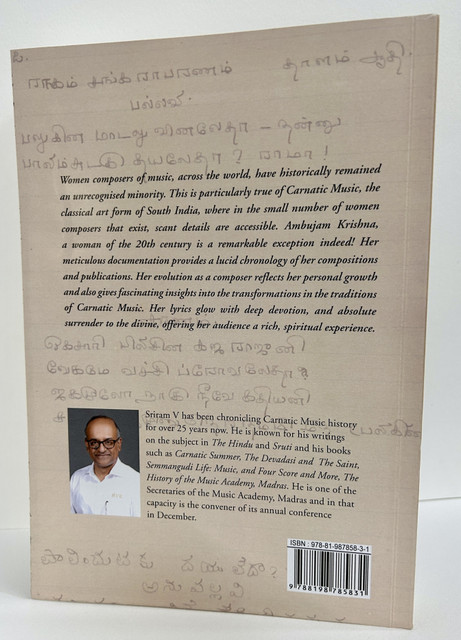 2.
ராகம் சங்கராபரணம் தாளம் ஆதி.
பல்லவி.
பாலிம்சுடகு தயலேதா? ராமா!
Women composers of music, across the world, have historically remained
an unrecognised minority. This is particularly true of Carnatic Music, the
classical art form of South India, where in the small number of women
composers that exist, scant details are accessible. Ambujam Krishna,
a woman of the 20th century is a remarkable exception indeed! Her
meticulous documentation provides a lucid chronology of her compositions
and publications. Her evolution as a composer reflects her personal growth
and also gives fascinating insights into the transformations in the traditions
of Carnatic Music. Her lyrics glow with deep devotion, and absolute
surrender to the divine, offering her audience a rich, spiritual experience.
வேகமே வச்சி ப்ரோவலேதா?
Sriram V has been chronicling Carnatic Music history
for over 25 years now. He is known for his writings
on the subject in The Hindu and Sruti and his books
such as Carnatic Summer, The Devadasi and The Saint,
Semmangudi Life: Music, and Four Score and More, The
History of the Music Academy, Madras. He is one of the
Secretaries of the Music Academy, Madras and in that
capacity is the convener of its annual conference
in December.
ISBN : 978-81-987858-3-1
9 788198 785831
அனுபல்லவி